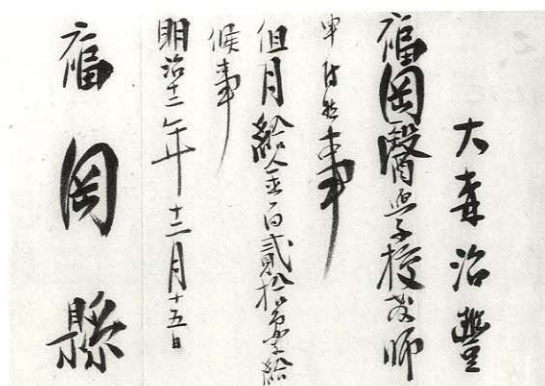 大森治豐
福岡醫學校教師
申付候事
但月給金百貳拾圓支給
候事
明治十二年十二月十五日
福岡縣